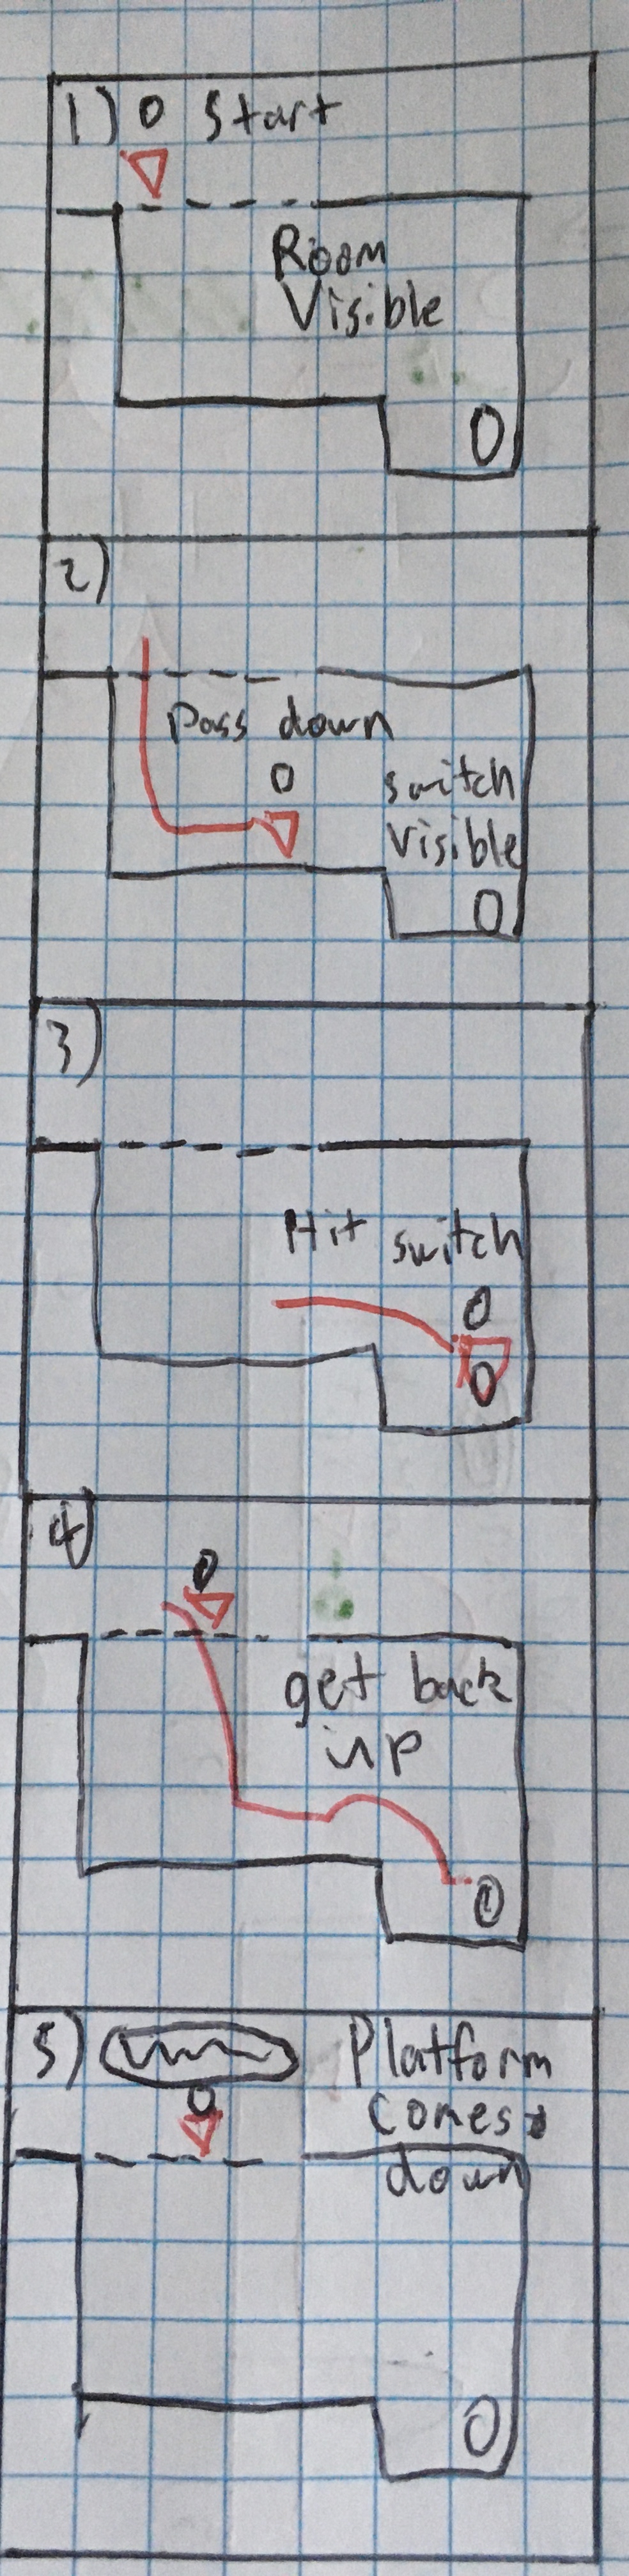 1) Start
Room
Visible
2)
Pass down
switch
visible
3)
Hit switch
4)
get back
up
5) Platform
comes
down